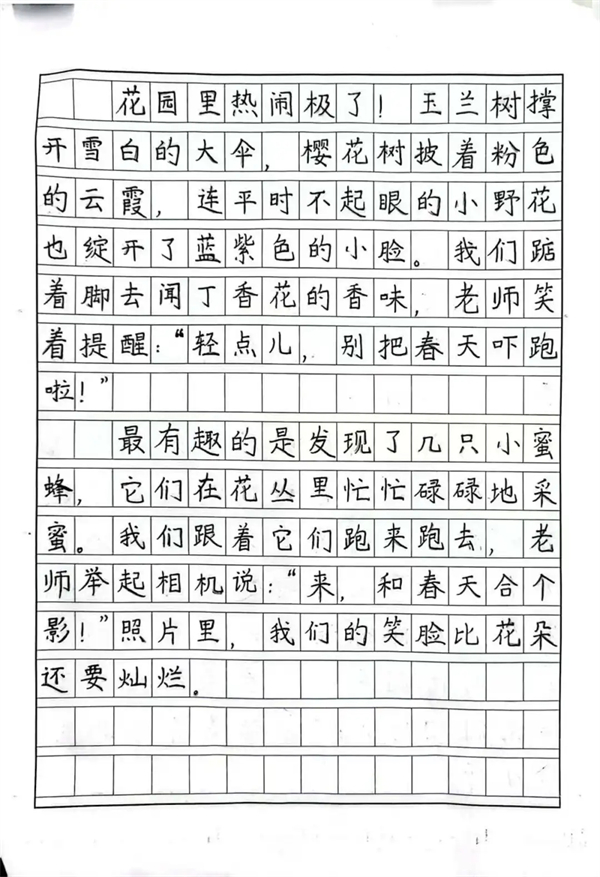 花园里热闹极了！玉兰树撑
开雪白的大伞，樱花树披着粉色
的云霞，连平时不起眼的小野花
也绽开了蓝紫色的小脸。我们踮
着脚去闻丁香花的香味，老师笑
着提醒：“轻点儿，别把春天吓跑
啦！”
最有趣的是发现了几只小蜜
蜂，它们在花丛里忙忙碌碌地采
蜜。我们跟着它们跑来跑去，老
师举起相机说：“来，和春天合个
影！”照片里，我们的笑脸比花朵
还要灿烂。